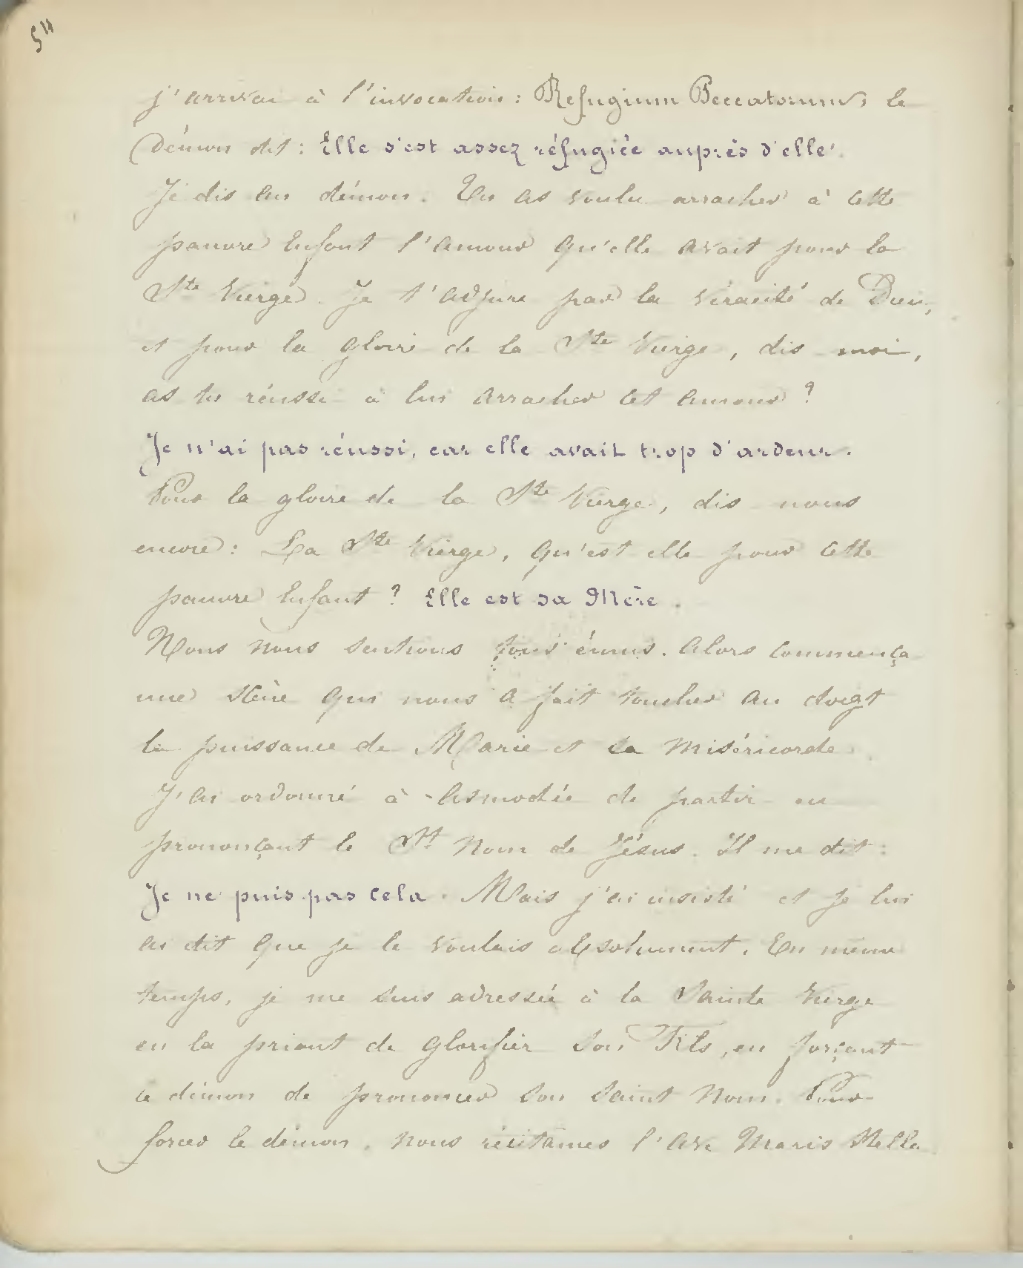 j'arrivai à l'invocation : Refugium Peccatorum, le
Démon dit : Elle s'est assez réfugiée auprès d'elle.
Je dis au démon. Tu as voulu arracher à cette
pauvre Enfant l'amour qu'elle avait pour la
Ste Vierge. Je t'adjure par la véracité de Dieu,
et pour la gloire de la Ste Vierge, dis moi,
as tu réussi à lui arracher cet amour ?
Je n'ai pas réussi, car elle avait trop d'ardeur.
Pour la gloire de la Ste Vierge, dis nous
encore : La Ste Vierge, qu'est elle pour cette
pauvre Enfant ? Elle est sa Mère.
Nous nous sentions tous émus. Alors commença
une scène qui nous a fait toucher au doigt
la puissance de Marie et sa miséricorde.
J'ai ordonné à Asmodée de partir en
prononçant le St Nom de Jésus. Il me dit :
Je ne puis pas cela. Mais j'ai insisté et je lui
ai dit que je le voulais absolument. En même
temps, je me suis adressée à la Sainte Vierge
en la priant de glorifier son Fils, en forçant
le démon de prononcer son Saint Nom. Pour
forcer le démon, nous récitâmes l'Ave Maris Stella